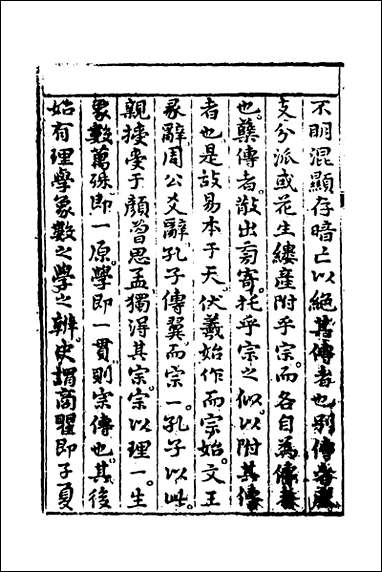 不明混顯存暗亡以絕其傳者也別傳者
支分派或花生縷產附乎宗而各自為傳者
也蘖傳者散出旁寄托乎宗之似以附其傳
者也是故易本于天伏羲始作而宗始文王
彖辭周公爻辭孔子傳翼而宗一孔子以此
親授受于顏曾思孟獨得其宗宗以理一生
象數萬殊即一原學即一貫則宗傳也其後
始有理學象數之學之辨史謂商瞿即子夏